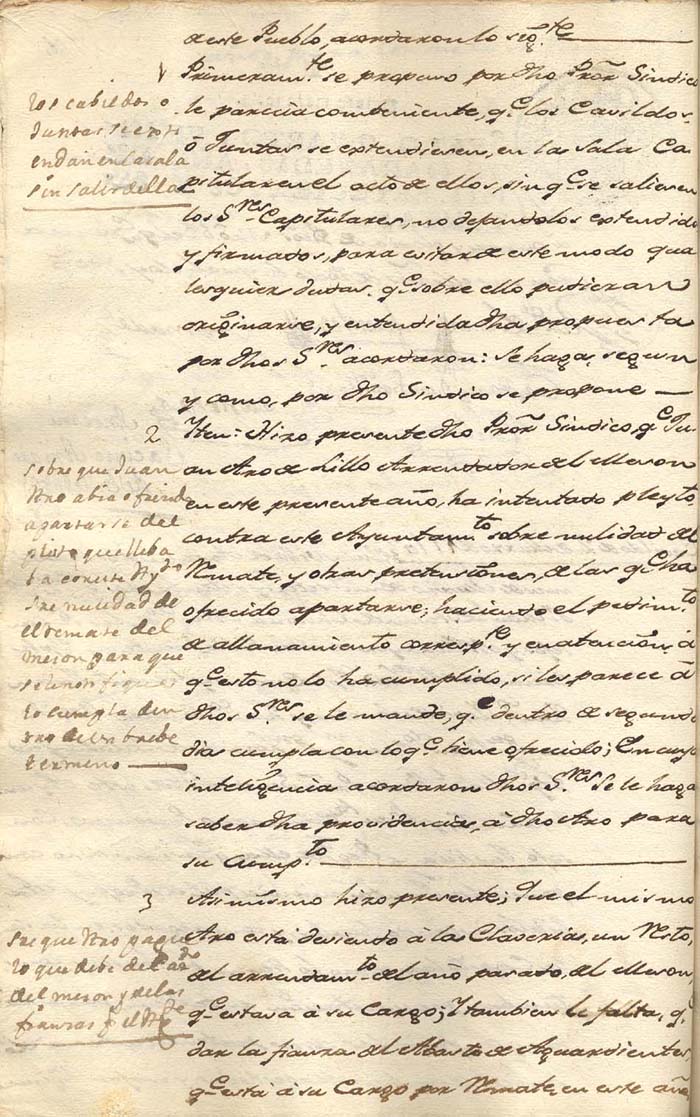 de este Pueblo, acordaron lo sig.te
1
Primeram.te se propuso por dho Pror Sindico
le parecia combeniente, q.e los Cavildos,
ò Juntas se extendiesen, en la Sala Ca-
pitular en el acto de ellos, sin q.e se saliesen
los S.res Capitulares, no dejandolos extendidos
y firmados, para evitar de este modo qua
lesquier dudas, q.e sobre ello pudieran
originarse, y entendida dha propuesta
por dhos S.res acordaron: Se haga, segun
y como, por dho Sindico se propone
los cabildos o
Juntas se exti
endan en la sala
sin salir de ella
2
Iten: Hizo presente dho Pror Sindico, q.e Ju-
an Aro de Lillo Arrendador del Meson
en este presente año, ha intentado pleyto
contra este Ayuntam.to sobre nulidad del
Remate, y otras pretensiones, de las q.e ha
ofrecido apartarse, haciendo el pedim.to
de allanamiento corresp.te y en atencion à
q.e esto no lo ha cumplido, si les parece à
dhos S.res se le mande, q.e dentro de segundo
dia cumpla con lo q.e tiene ofrecido; En cuya
inteligencia acordaron dhos S.res Se le haga
saber dha providencia, à dho Aro para
su Cump.to
sobre que Juan
Aro abia ofrecido
apartarse del
pleito que lleba
ba con este Ay.to
sre nulidad de
el remate del
meson para que
se le notifique
lo cumpla den
tro de un brebe
termino
3
Asimismo hizo presente; Que el mismo
Aro està deviendo à las Claverias, un Resto,
del arrendam.to del año pasado, del Meson,
q.e estava à su Cargo; Y tambien le falta, q.e
dar la fianza del Abasto de Aguardientes,
q.e està à su Cargo por Remate, en este año
sre que Aro pague
lo que debe del
del meson y de las
fianzas